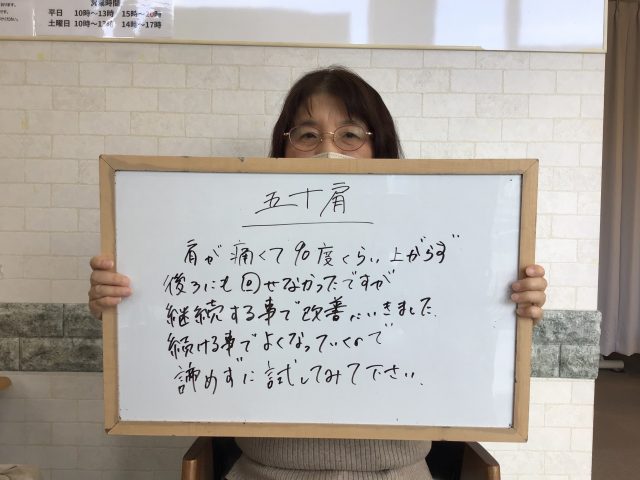 営業時間
平日 10時〜13時 15時〜20時
土曜日 10時〜13時 14時〜17時
五十肩
肩が痛くて90度くらい上がらず
後ろにも回せなかったですが
継続する事で改善していきました。
続ける事でよくなっていくので
諦めずに試してみて下さい。